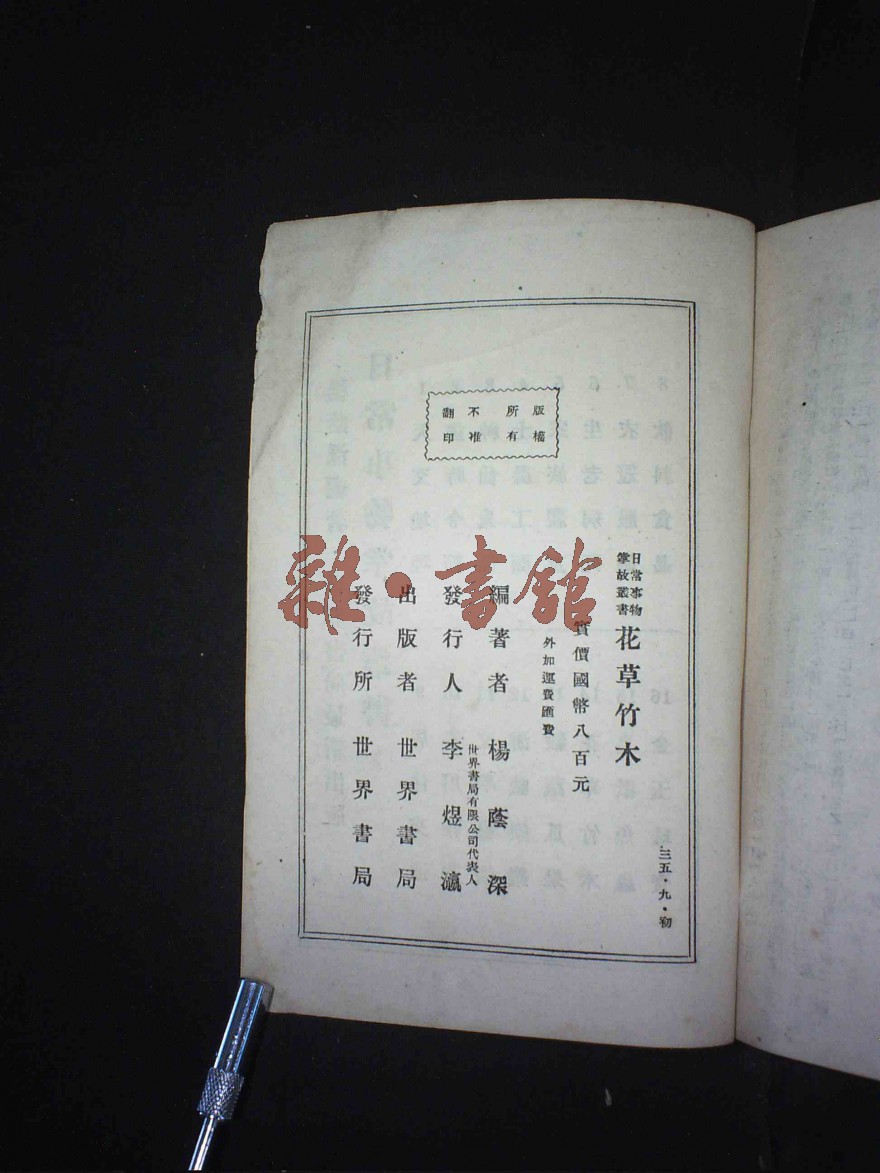 三五·九·初
日常事物
掌故叢書
花草竹木
實價國幣八百元
外加運費匯費
版權
所有
不准
翻印
編著者 楊蔭深
世界書局有限公司代表人
發行人 李煜瀛
出版者 世界書局
發行所 世界書局
雜·書館